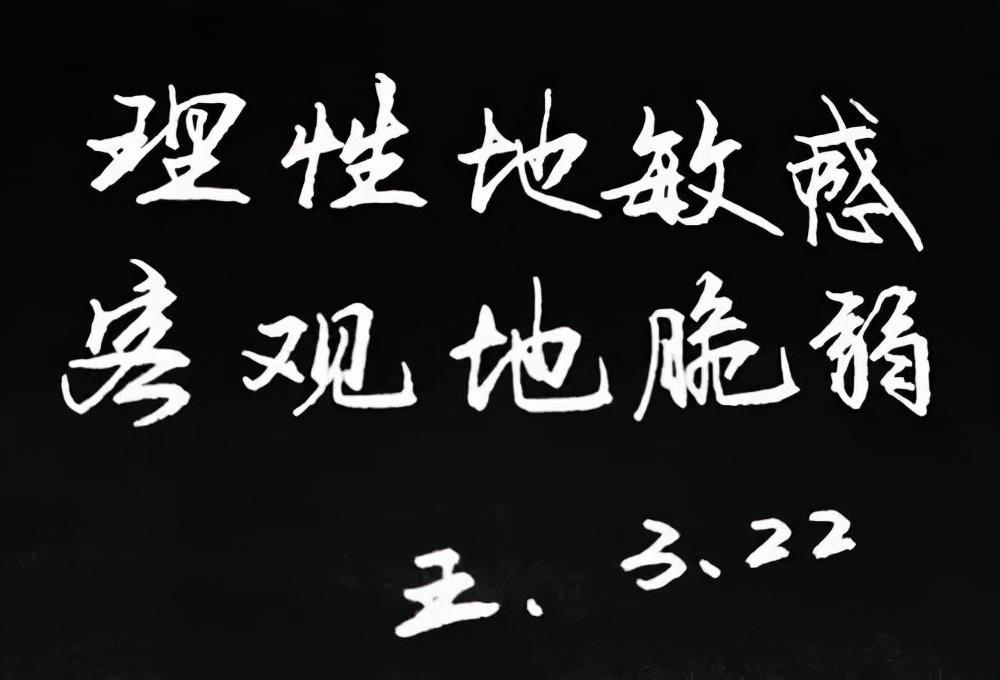 理性地敏感
客观地脆弱
王、3、22